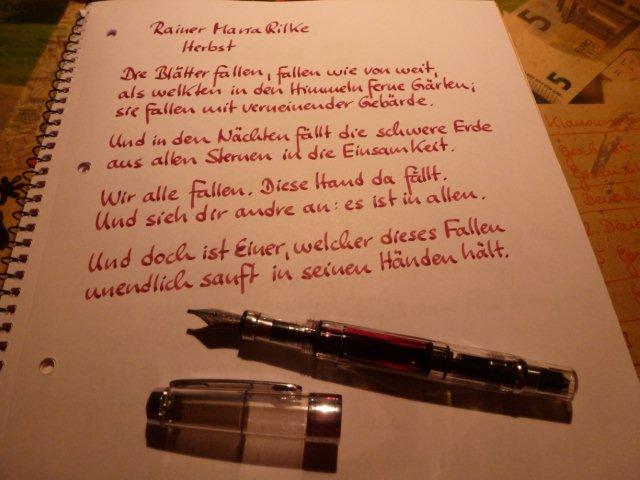 Rainer Maria Rilke
Herbst
Die Blätter fallen, fallen wie von weit,
als welkten in den Himmeln ferne Gärten;
sie fallen mit verneinender Gebärde.
Und in den Nächten fällt die schwere Erde
aus allen Sternen in die Einsamkeit.
Wir alle fallen. Diese Hand da fällt.
Und sieh dir andre an: es ist in allen.
Und doch ist Einer, welcher dieses Fallen
unendlich sanft in seinen Händen hält.
5
5